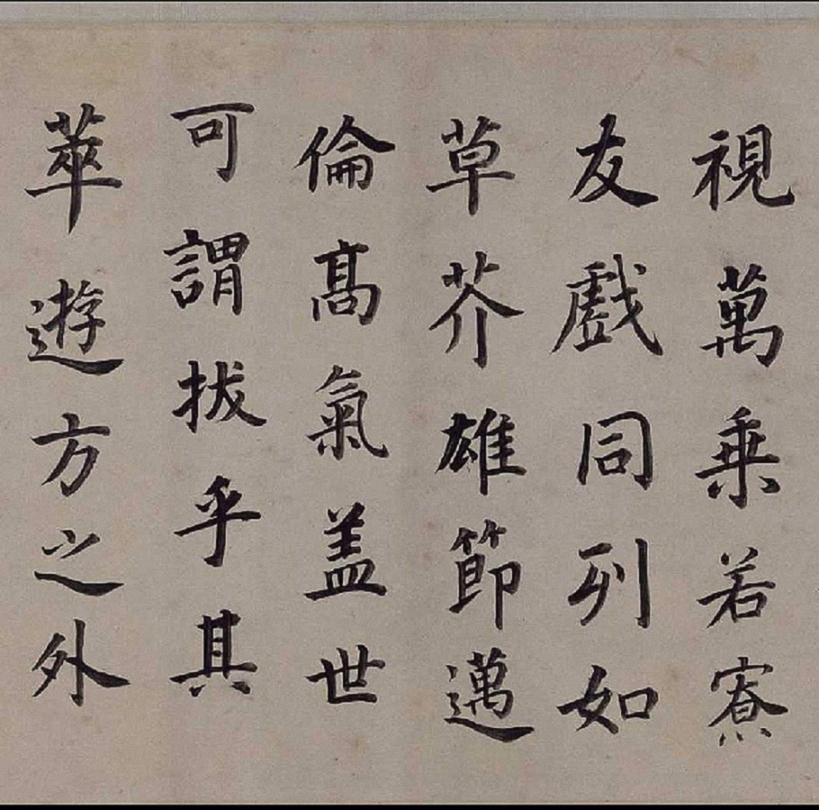 視萬乗若寮
友戲同列如
草芥雄節邁
倫髙氣盖世
可謂拔乎其
萃遊方之外